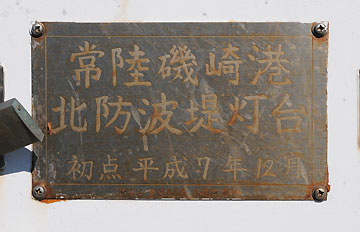 常陸磯崎港
北防波堤灯台
初点 平成7年12月